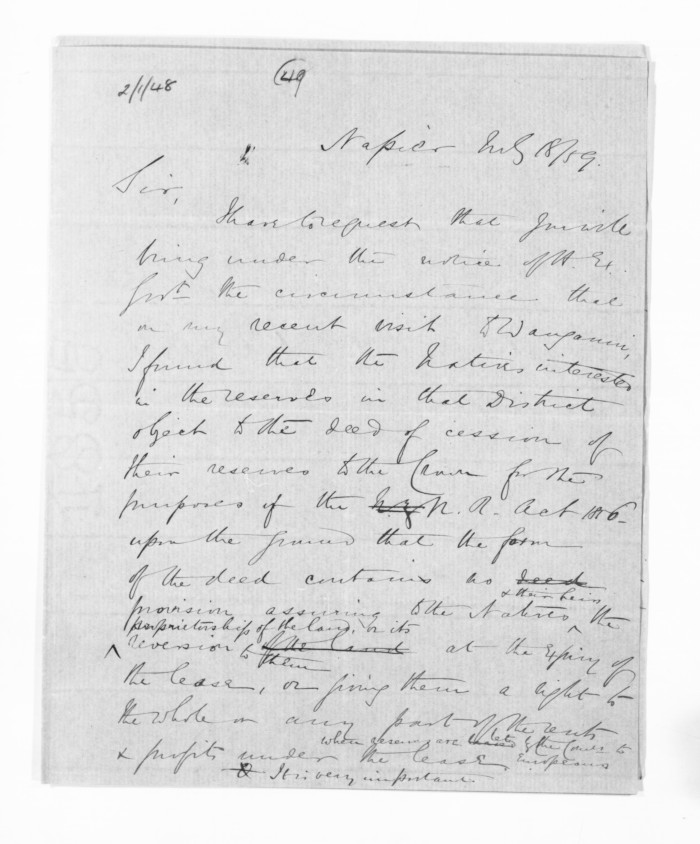 2/1/48
49
Napier July 18/59.
Sir,
I have to request that you will
bring under the notice of H. Ex.
Govt the circumstance that
on my recent visit to Wanganui,
I found that the Natives interested
in the reserves in that District
object to the deed of cession of
their reserves to the Crown for the
purposes of the N. R. Act 1856
upon the ground that the form
of the deed contains no deed
& their heirs
provision assuring to the Natives ^ the
proprietorship of the land, or its
^ reversion to them of the land at the expiry of
the lease, or giving them a right to
the whole or any part of the rents
where reserves are leased let by the Crown to
& profits under the lease. Europeans
& It is very important